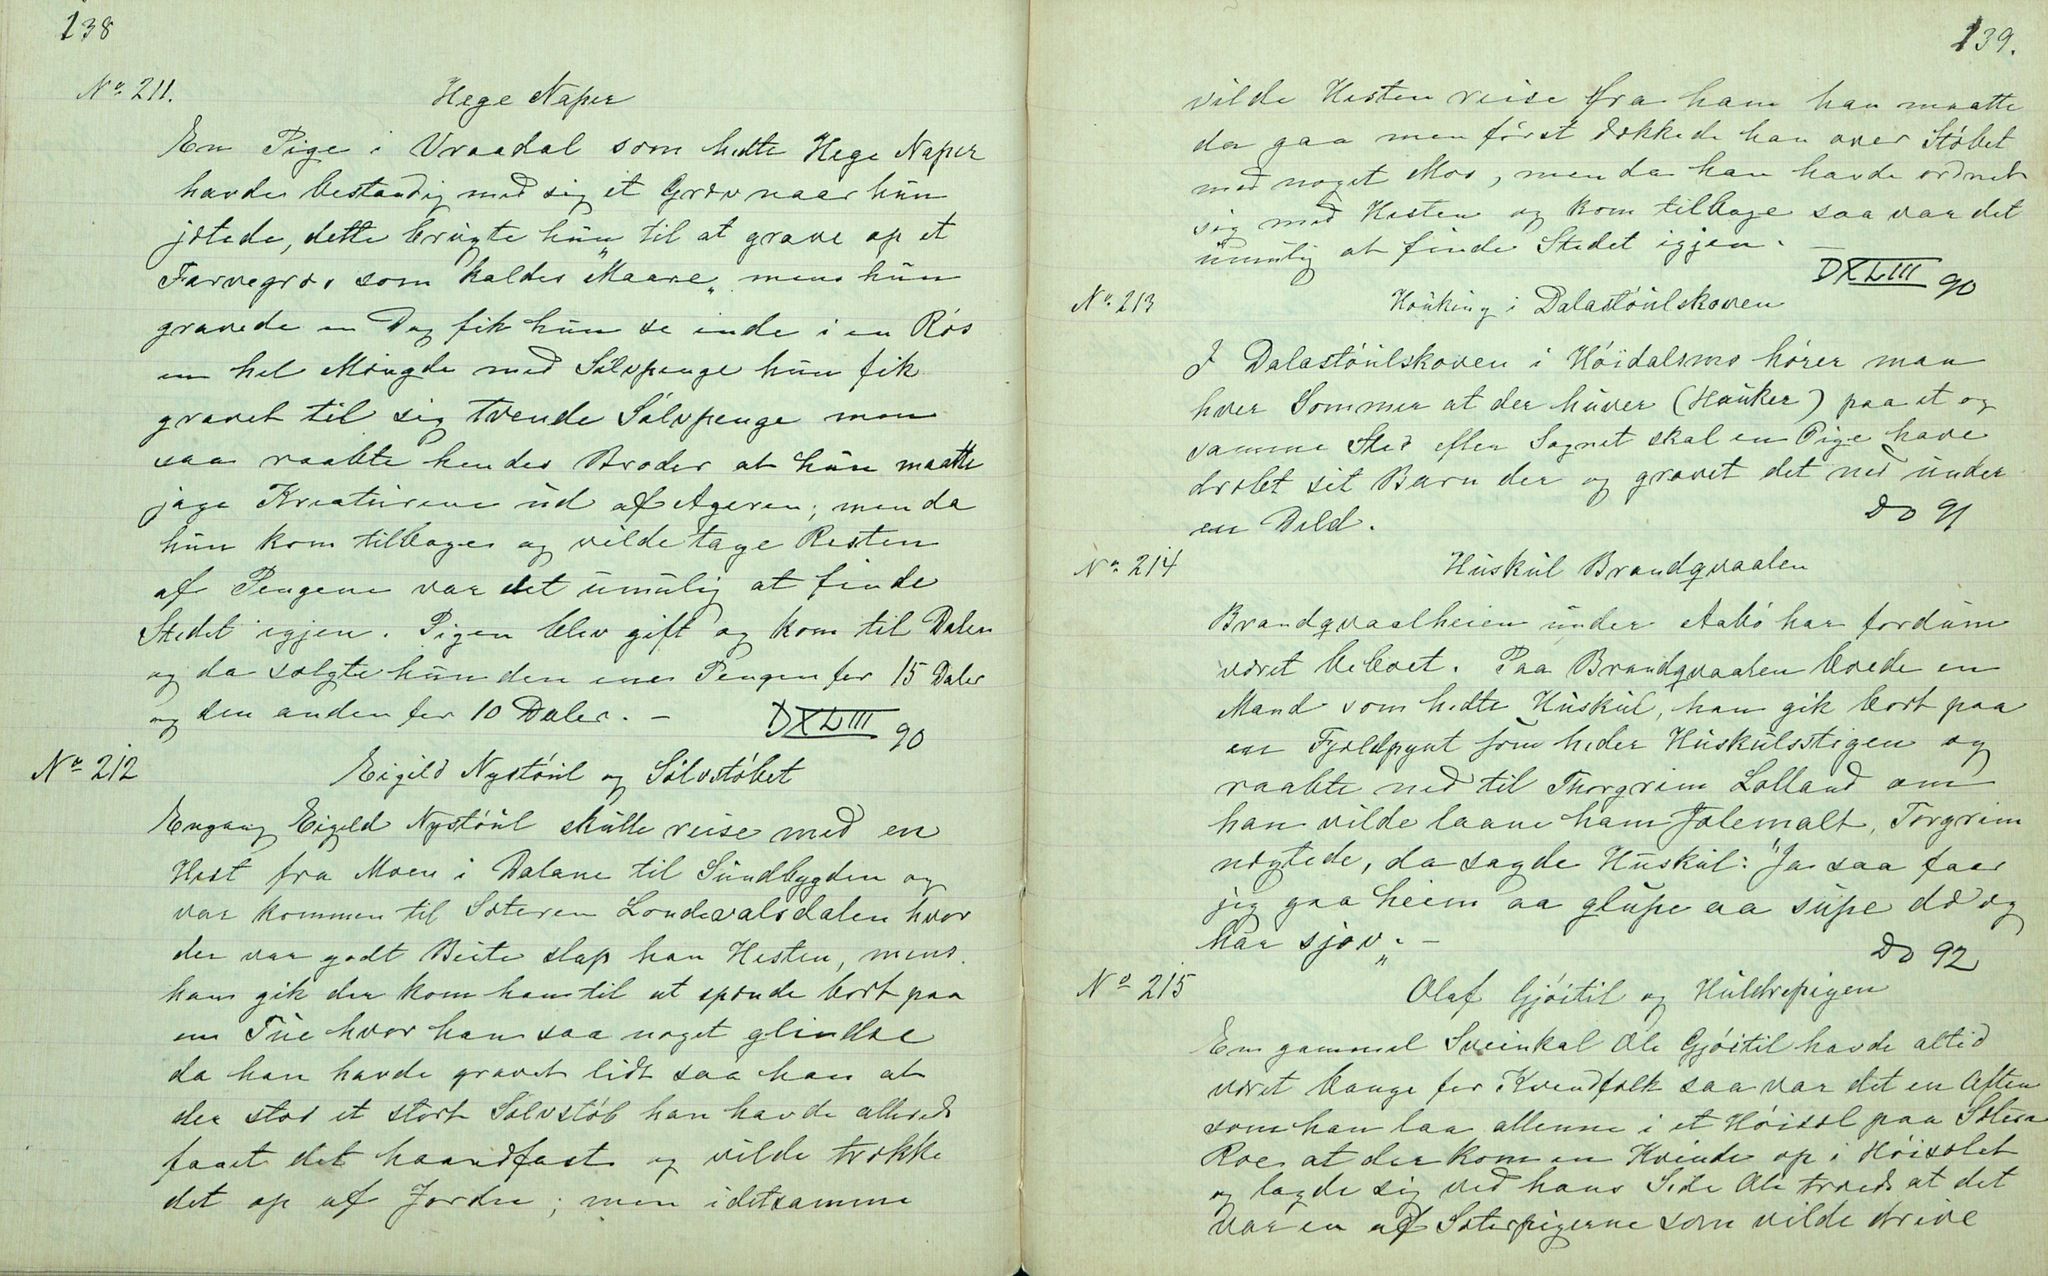 138
No 211.
Hege Naper
En Pige i Vraadal som hedte Hege Naper
havde bestandig med sig et Grev naar hun
jætede, dette brugte hun til at grave op et
Farvegræs som kaldes "Maare" mens hun
gravede en Dag fik hun se inde i en Røs
en hel Mængde med Sølvpenge hun fik
gravet til sig tvende Sølvpenge men
saa raabte hendes Broder at hun maatte
jage Kreaturene ud af Ageren; men da
hun kom tilbage og vilde tage Resten
af Pengene var det umulig at finde
Stedet igjen. Pigen blev gift og kom til Dalen
og da solgte hun den ene Pengen for 15 Daler
og den anden for 10 Daler. –
DXLIII 90
No 212
Eigild Nystöul og Sølvstøbet
Engang Eigild Nystöul skulle reise med en
Hest fra Moen i Dalane til Sundbygden og
var kommen til Sæteren Londevalsdalen hvor
der var godt Beite slap han Hesten, mens
han gik der kom han til at spænde bort paa
en Tue hvor han saa noget glindse
da han havde gravet lidt saa han at
der stod et stort Sølvstøb han havde allerede
faaet det haandfast og vilde trække
det op af Jorden; men i detsamme
139.
vilde Hesten reise fra ham han maatte
da gaa men først dækkede han over Støbet
med noget Mos, men da han havde ordnet
sig med Hesten og kom tilbage saa var det
umulig at finde Stedet igjen. –
DXLIII 90
No 213
Houking i Dalastöulskoven
I Dalastöulskoven i Høidalsmo hører man
hver Sommer at der huver (Hauker) paa et og
samme Sted efter Sagnet skal en Pige have
dræbt sit Barn der og gravet det ned under
en Deld.
Do 91
No 214
Huskul Brandqvaalen
Brandqvaalheien under Aabø har fordum
været beboet. Paa Brandqvaalen boede en
Mand som hedte Huskul, han gik bort paa
en Fjeldpynt som heder Huskulsstigen og
raabte ned til Thorgrim Lolland om
han vilde laane ham Jolemalt, Torgrim
nægtede, da sagde Huskul: "Ja saa faar
jeg gaa heim aa glupe aa supe dæ eg
har sjøv". –
Do 92
No 215
Olaf Gjøitil og Huldrepigen
En gammel Sveinkal Ole Gjøitil havde altid
været bange for Kvendfolk saa var det en Aften
som han laa allenne i et Høisæl paa Sæteren
Roe at der kom en Kvinde op i Høisælet
og lagde sig ved hans Side Ole troede at det
var en af Sæterpigerne som vilde drive